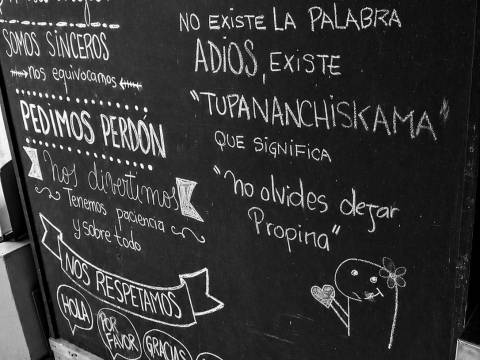 SOMOS SINCEROS
nos equivocamos
PEDIMOS PERDÓN
nos divertimos
Tenemos paciencia
y sobre todo
NOS RESPETAMOS
HOLA
POR
FAVOR
GRACIAS
NO EXISTE LA PALABRA
ADIOS, EXISTE
"TUPANANCHISKAMA"
QUE SIGNIFICA
"no olvides dejar
Propina"